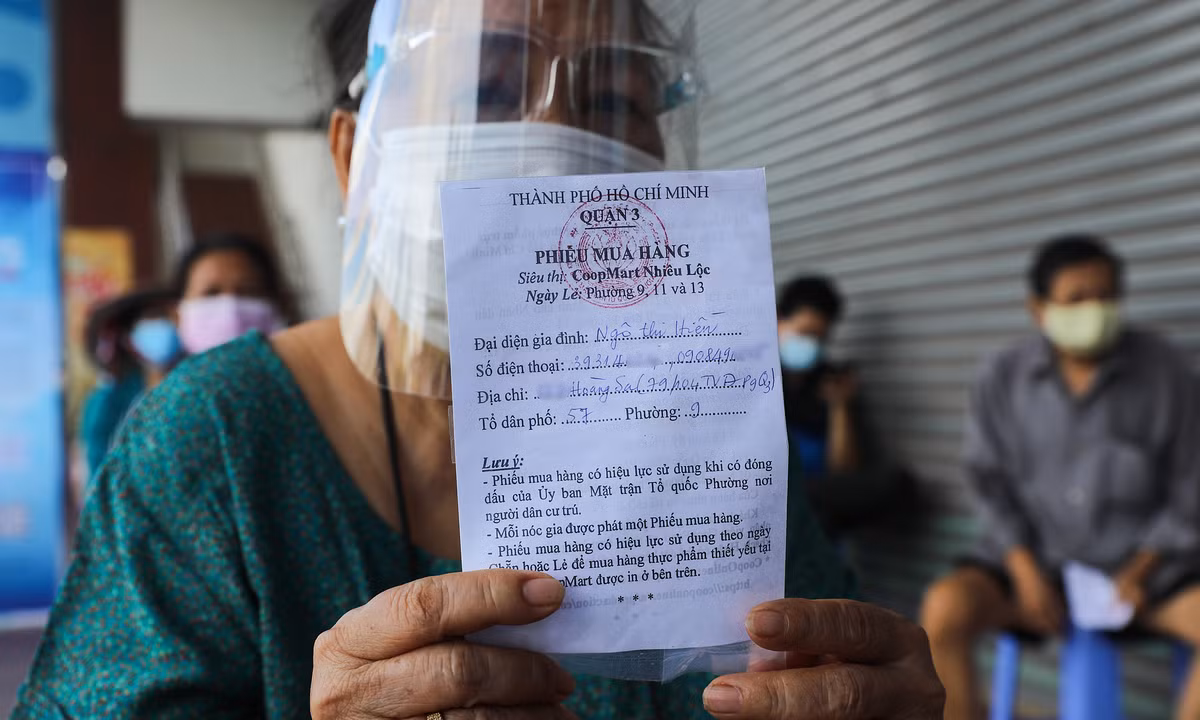 THÀNH PHỐ HỒ CHÍ MINH
QUẬN 3
PHIẾU MUA HÀNG
Siêu thị: CoopMart Nhiêu Lộc
Ngày Lẻ: Phường 9, 11 và 13
Đại diện gia đình: Ngô thị Hiền
Số điện thoại: 39314 090849
Địa chỉ: Hoàng Sa (79/104 TVĐ P9Q3)
Tổ dân phố: 57 Phường: 9
Lưu ý:
- Phiếu mua hàng có hiệu lực sử dụng khi có đóng
dấu của Ủy ban Mặt trận Tổ quốc Phường nơi
người dân cư trú.
- Mỗi nóc gia được phát một Phiếu mua hàng.
- Phiếu mua hàng có hiệu lực sử dụng theo ngày
Chẵn hoặc Lẻ để mua hàng thực phẩm thiết yếu tại
opMart được in ở bên trên.
* * *